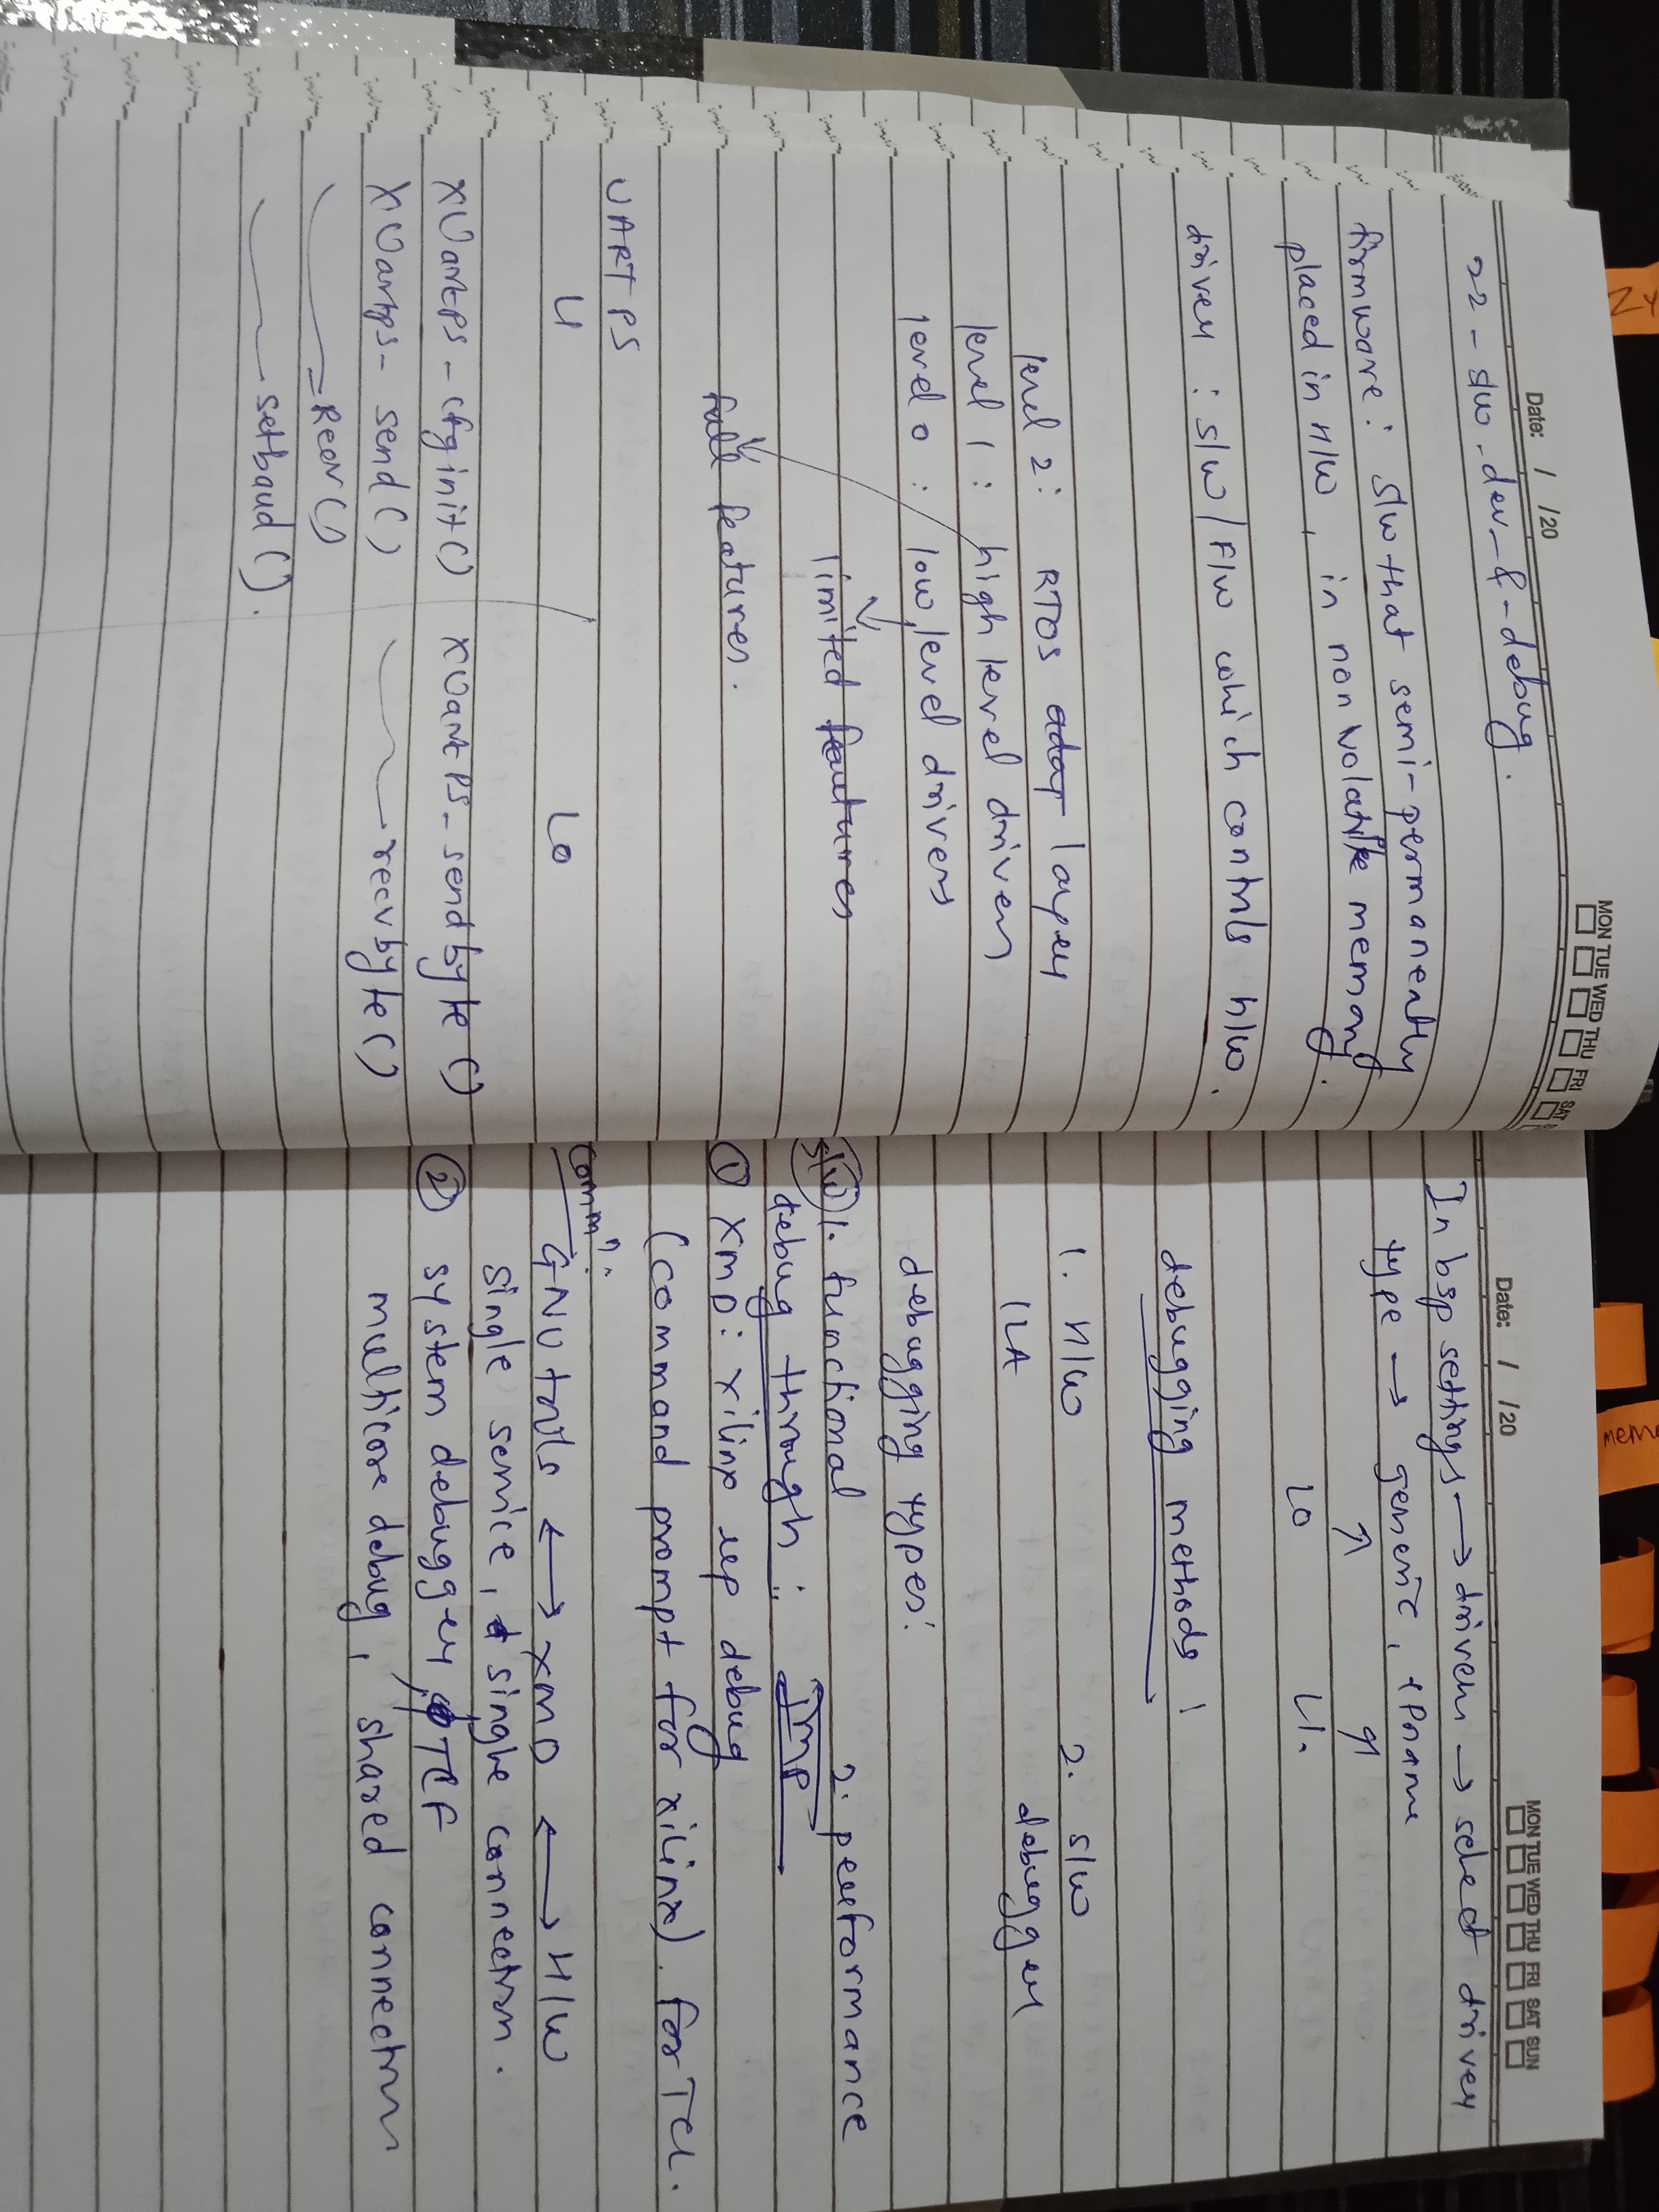 Date: / /20
MON TUE WED THU FRI SAT
22 - s/w - dev - & - debug.
firmware: s/w that semi-permanently
placed in h/w, in non volatile memory.
driver : s/w / F/w which controls h/w.
level 2: RTOS adap layer
level 1 : high level drivers
level 0 : low level drivers
limited features
full features.
UARTPS
L1 L0
XUartPS - cfginit() XUartPS - sendbyte ()
XUartps - send () recvbyte ()
Recv()
setbaud ().
Date: / /20
MON TUE WED THU FRI SAT SUN
In bsp settings → drivers → select driver
type → generic, IPname
L0 L1.
debugging methods!
1. H/w 2. s/w
ILA debugger
debugging types:
s/w 1. functional 2. performance
debug through : Imp
① XMD: xilinx up debug
(command prompt for xilinx). for Tcl.
commn: GNU tools ↔ XMD ↔ H/w
single service, single connection.
② system debugger, TCF
multicore debug, shared connection
mem